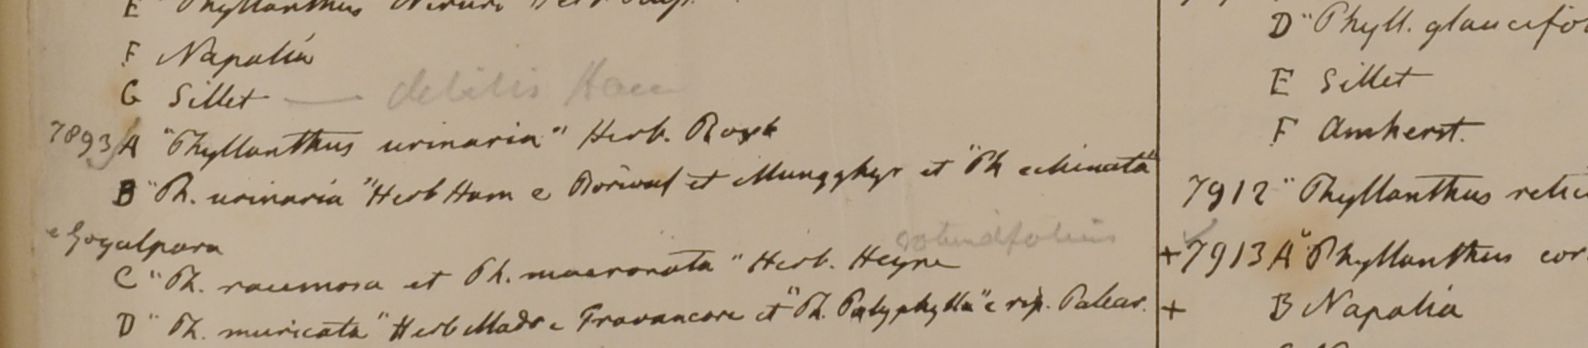 E "Phyllanthus Niruri Herb
F Napalia
G Sillet — debilis Ham
7893 A "Phyllanthus urinaria" Herb. Roxb
B "Ph. urinaria" Herb Ham e et Mungghyr et "Ph echinata"
e Goyalpara
rotundifolius
C "Ph. racemosa et Ph. mucronata" Herb. Heyne
D "Ph. muricata" Herb Madr e Travancore et "Ph. Polyphylla" e rip.
D "Phyll. glaucifo
E Sillet
F Amherst.
7912 "Phyllanthus retic
+ 7913 A "Phyllanthus cor
+ B Napalia